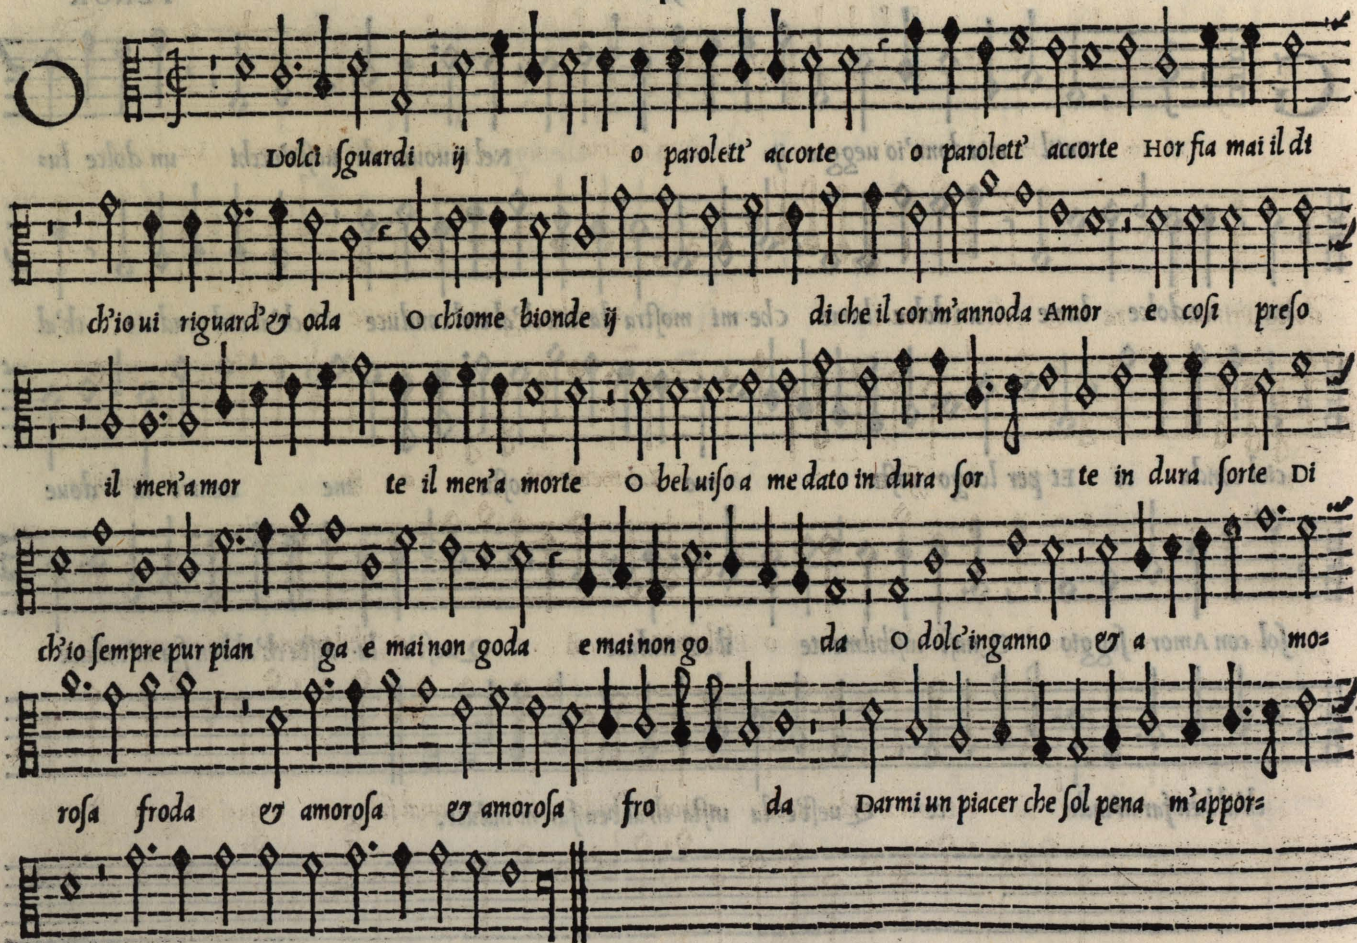 O Dolci ſguardi ij o parolett' accorte o parolett' accorte Hor fia mai il di
ch'io ui riguard' & oda O chiome bionde ij di che il cor m'annoda Amor e coſi preſo
il men'a mor te il men'a morte O bel uiſo a me dato in dura ſor te in dura ſorte Di
ch'io ſempre pur pian ga e mai non goda e mai non go da O dolc'inganno & a mo=
roſa froda & amoroſa & amoroſa fro da Darmi un piacer che ſol pena m'appor=